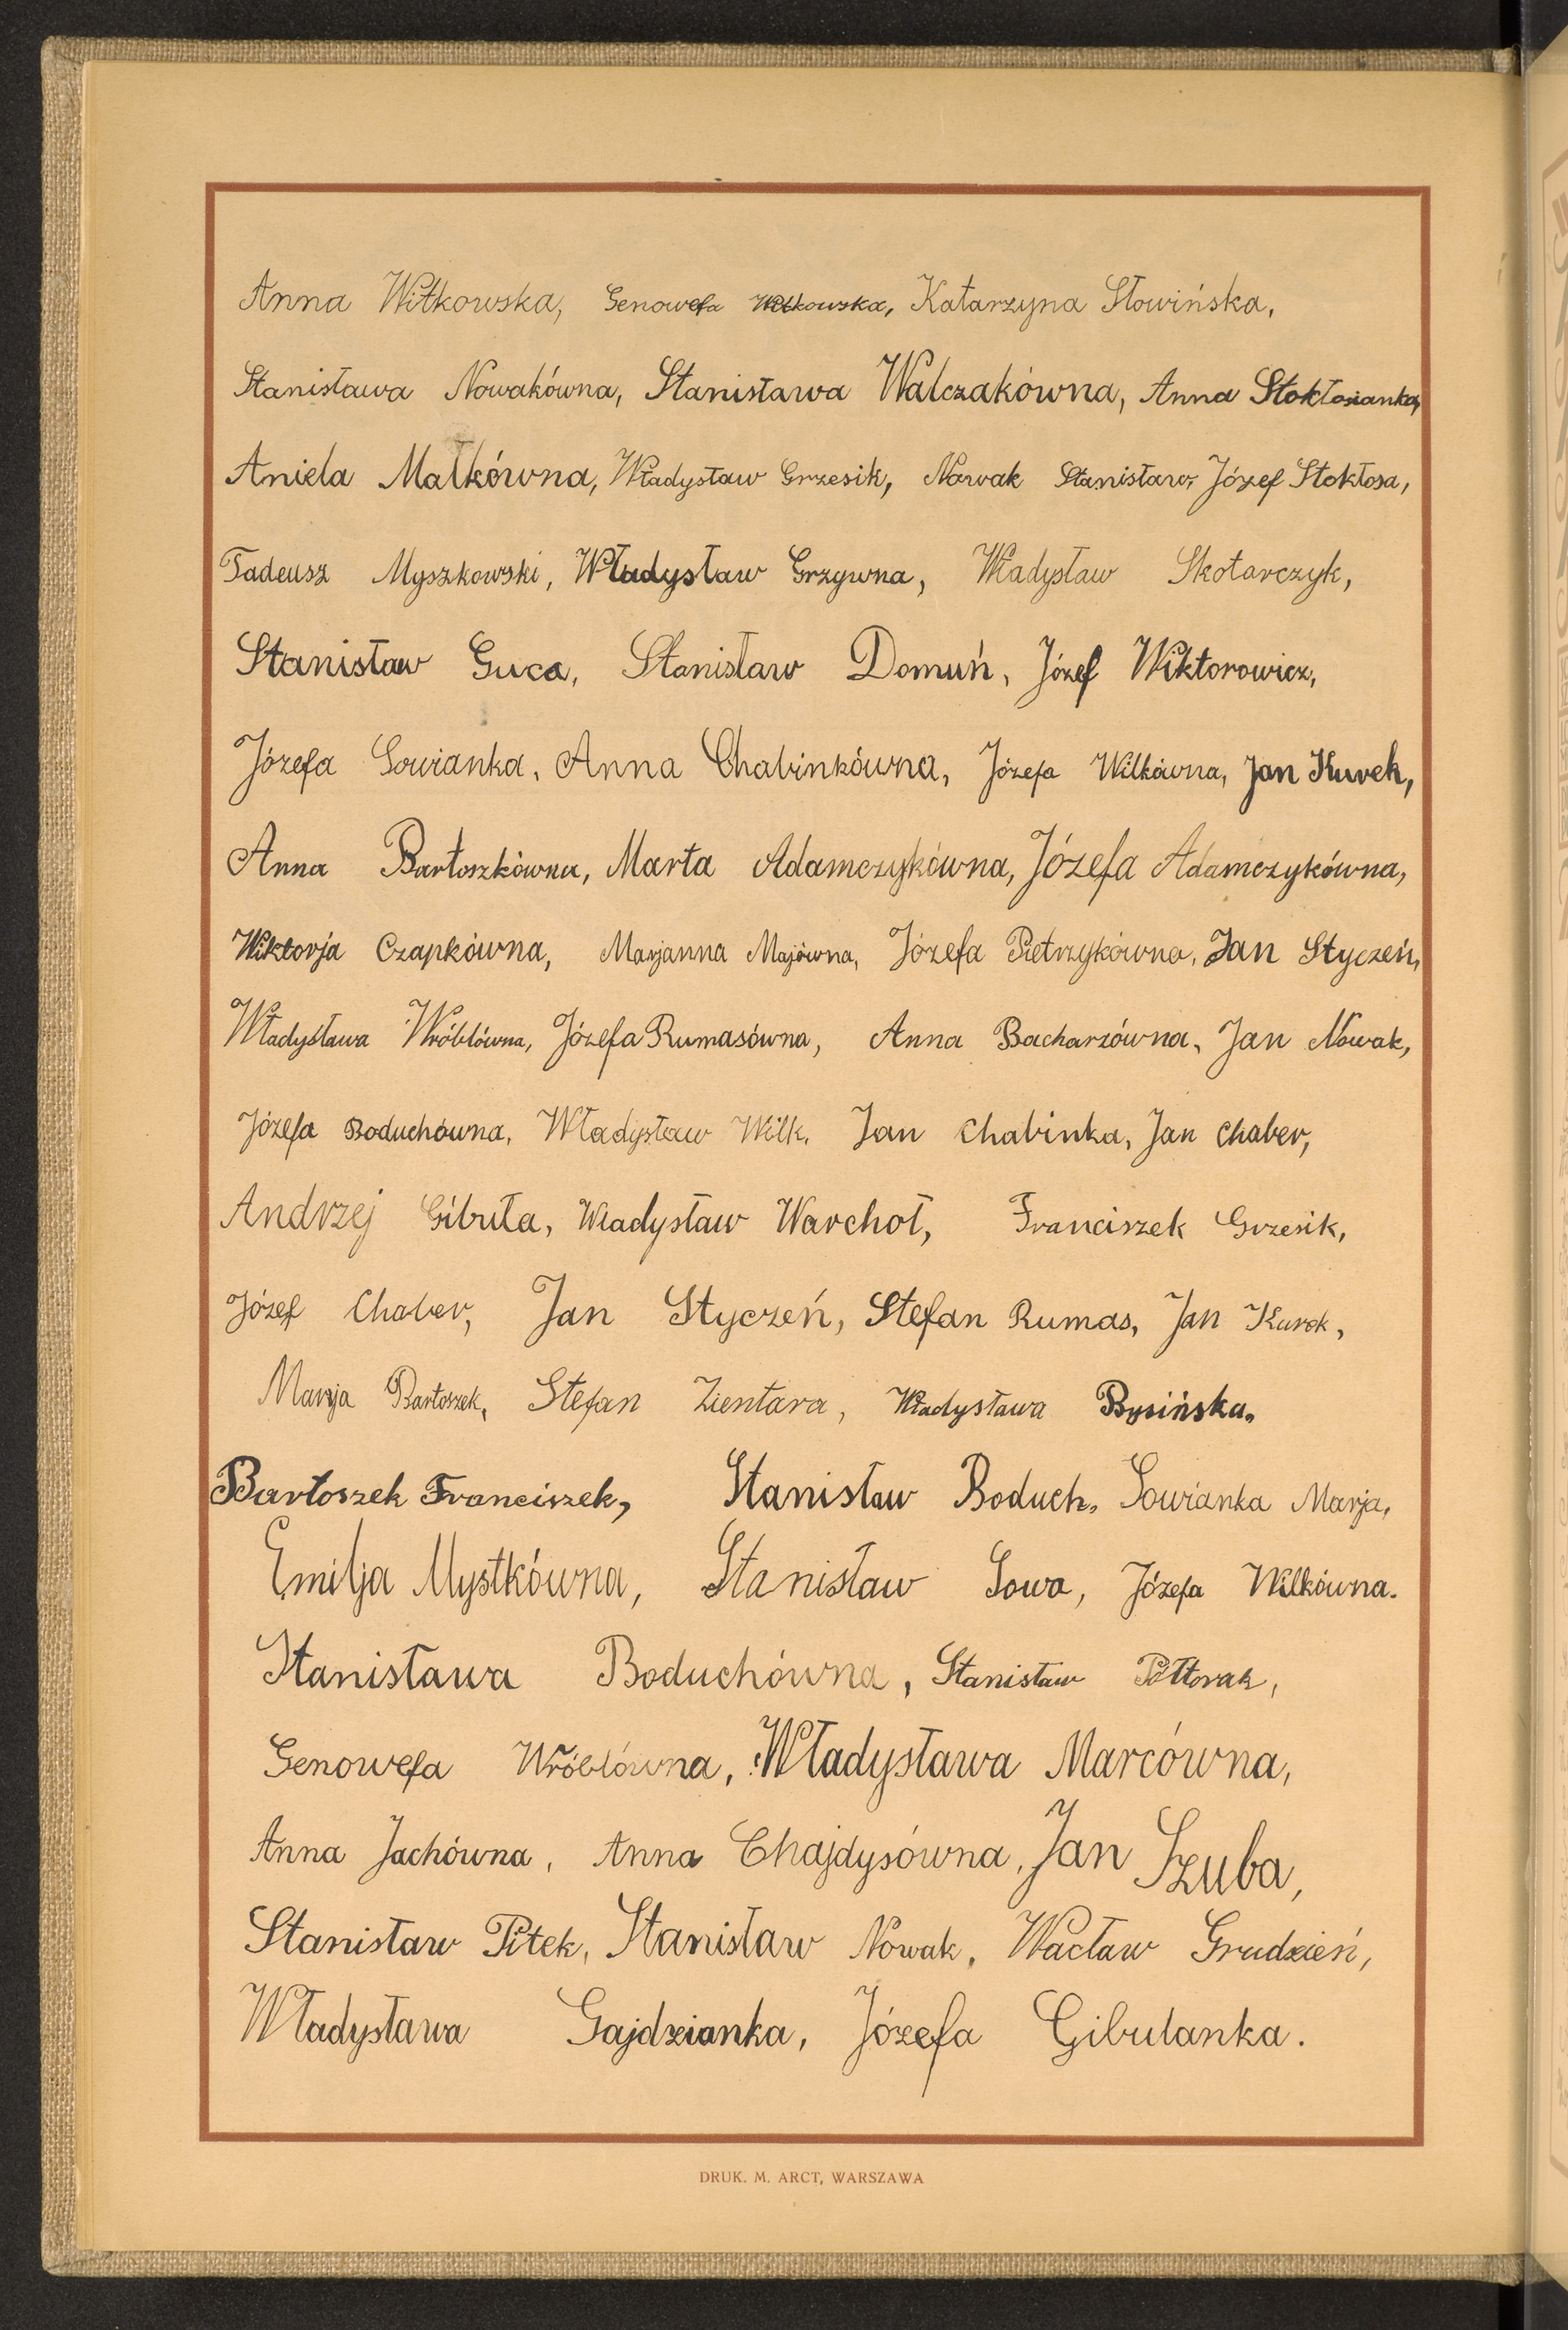 Anna Witkowska, Genowefa Witkowska, Katarzyna Słowińska,
Stanisława Nowakówna, Stanisława Walczakówna, Anna Stokłosianka,
Aniela Małkówna, Władysław Grzesik, Nowak Stanisław, Józef Stokłosa,
Tadeusz Myszkowski, Władysław Grzywna, Władysław Skotarczyk,
Stanisław Guca, Stanisław Domuń, Józef Wiktorowicz,
Józefa Sowianka, Anna Chabinkówna, Józefa Wilkówna, Jan Kurek,
Anna Bartoszkówna, Marta Adamczykówna, Józefa Adamczykówna,
Wiktorja Czapkówna, Marjanna Majówna, Józefa Pietrzykówna, Jan Styczeń,
Władysława Wróblówna, Józefa Rumasówna, Anna Bacharzówna, Jan Nowak,
Józefa Boduchówna, Władysław Wilk, Jan Chabinka, Jan Chaber,
Andrzej Gibuła, Władysław Warchoł, Franciszek Grzesik,
Józef Chaber, Jan Styczeń, Stefan Rumas, Jan Kurek,
Marja Bartoszek, Stefan Zientara, Władysława Bysińska.
Bartoszek Franciszek, Stanisław Boduch, Sowianka Marja,
Emilja Mystkówna, Stanisław Sowa, Józefa Wilkówna.
Stanisława Boduchówna, Stanisław Półtorak,
Genowefa Wróblówna, Władysława Marcówna,
Anna Jachówna, Anna Chajdysówna, Jan Szuba,
Stanisław Pitek, Stanisław Nowak, Wacław Grudzień,
Władysława Gajdzianka, Józefa Gibulanka.
DRUK. M. ARCT, WARSZAWA